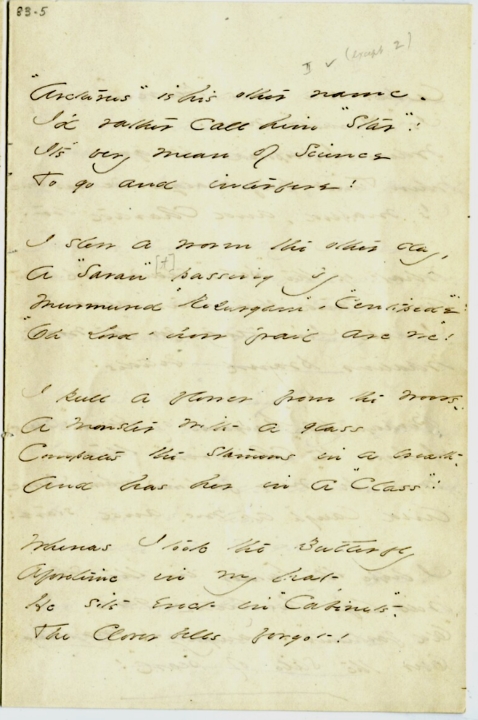 83-5
I ✓ (
"Arcturus" is his other name.
I'd rather Call him "Star"!
It's very mean of Science
To go and interfere!
I slew a worm the other day,
A "Savan" [+] passing by
Murmured "Resurgam" - "Centipede"!
"Oh Lord - how frail are we"!
I pull a flower from the woods.
A monster with a glass
Computes the stamens in a breath -
And has her in a "Class"!
Whereas I took the Butterfly
Aforetime in my hat -
He sits erect in "Cabinets" -
The Clover bells forgot!